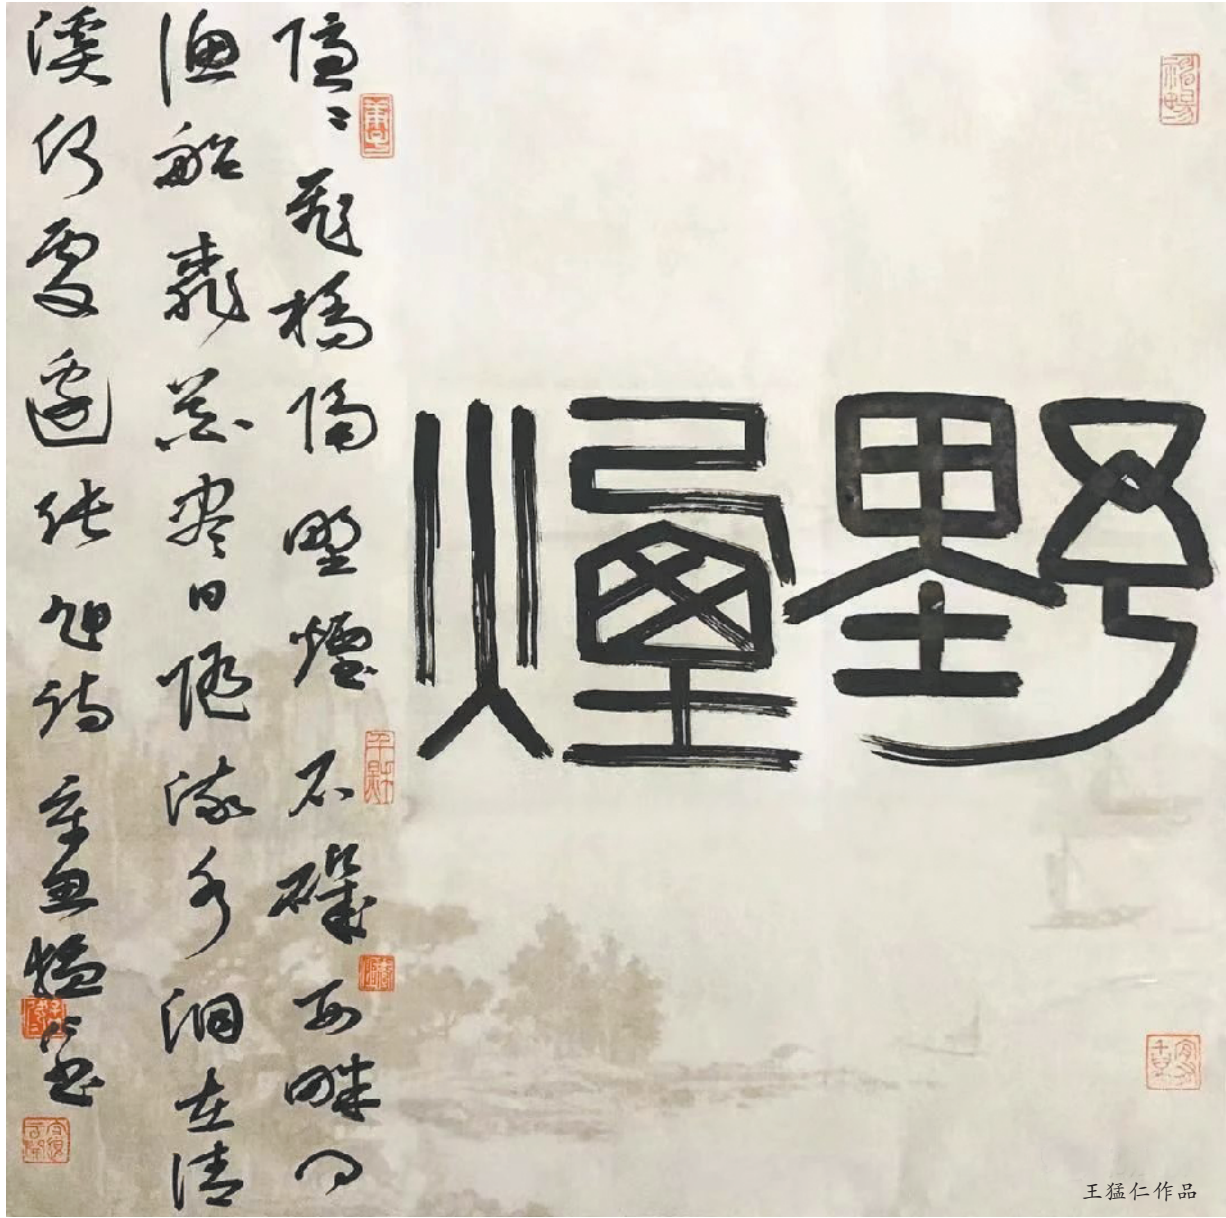 野煙
隱〻飛橋隔野煙石磯西畔問
漁船桃花盡日隨流水洞在清
溪何處邊張旭詩辛丑猛仁書
王猛仁作品